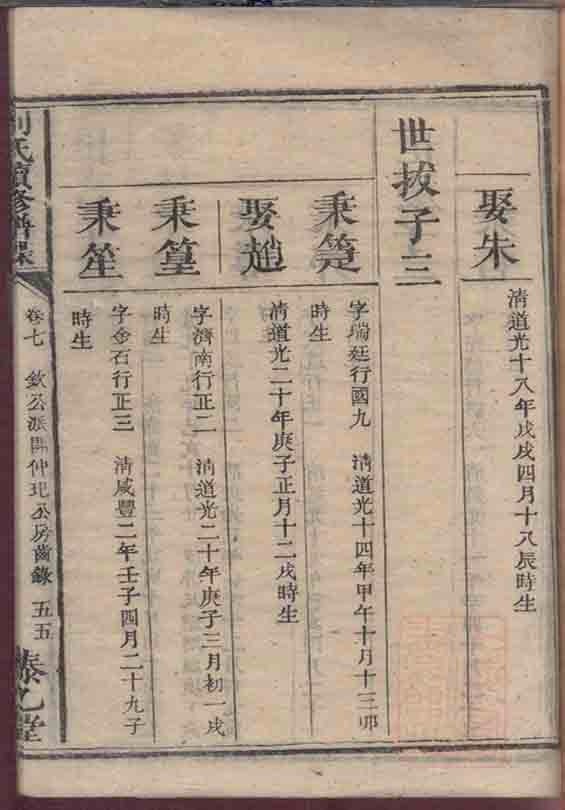 娶朱
清道光十八年戊戌四月十八辰時生
世拔子三
秉筵
字瑞廷行國九 清道光十四年甲午十月十三卯
時生
娶趙
清道光二十年庚子正月十二戌時生
秉篁
字濟南行正二 清道光二十年庚子三月初一戌
時生
秉笙
字金石行正三 清咸豐二年壬子四月二十九子
時生
氏續修譜
卷七 欽公派開仲玘公房齒錄 五五
乙堂